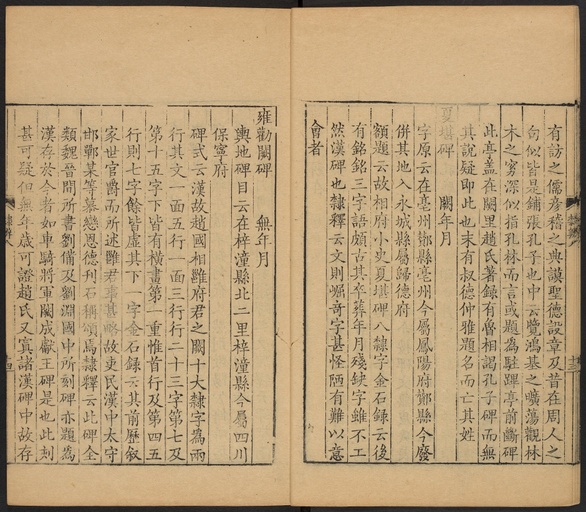 有訪之儒彥稽之典謨聖德設章及昔在周人之
句似皆是鋪張孔子也中云覽鴻基之曠蕩觀林
木之窈深似指孔林而言或題為駐蹕亭前斷碑
此亭蓋在闕里趙氏著錄有魯相謁孔子碑而無
其說疑即此也末有叔德仲雅題名而亡其姓
夏堪碑 闕年月
字原云在亳州鄼縣亳州今屬鳳陽府鄼縣今廢
併其地入永城縣屬歸德府
額題云故相府小史夏堪碑八隸字金石錄云後
有銘銘三字語頗古其卒葬年月殘缺字雖不工
然漢碑也隸釋云文則崛奇字甚怪陋有難以意
會者
隸辨八
十三
雍勸闕碑 無年月
輿地碑目云在梓潼縣北二里梓潼縣今屬四川
保寧府
碑式云漢故趙國相雝府君之闕十大隸字為兩
行其文一面五行一面三行行二十三字第七及
第十五字下皆有橫書第一重惟首行及第四五
行則七字餘皆虛其下一字金石錄云其前歷敘
家世官爵而所述雝君事甚略故吏民漢中太守
邯鄲某等慕戀恩德刋石稱頌焉隸釋云此碑全
類魏晉間所書劉備及劉淵國中所刻碑亦題為
漢存於今者如車騎將軍闕成獻王碑是也此刻
甚可疑但無年歲可證趙氏又寘諸漢碑中故存
隸辨八
十四